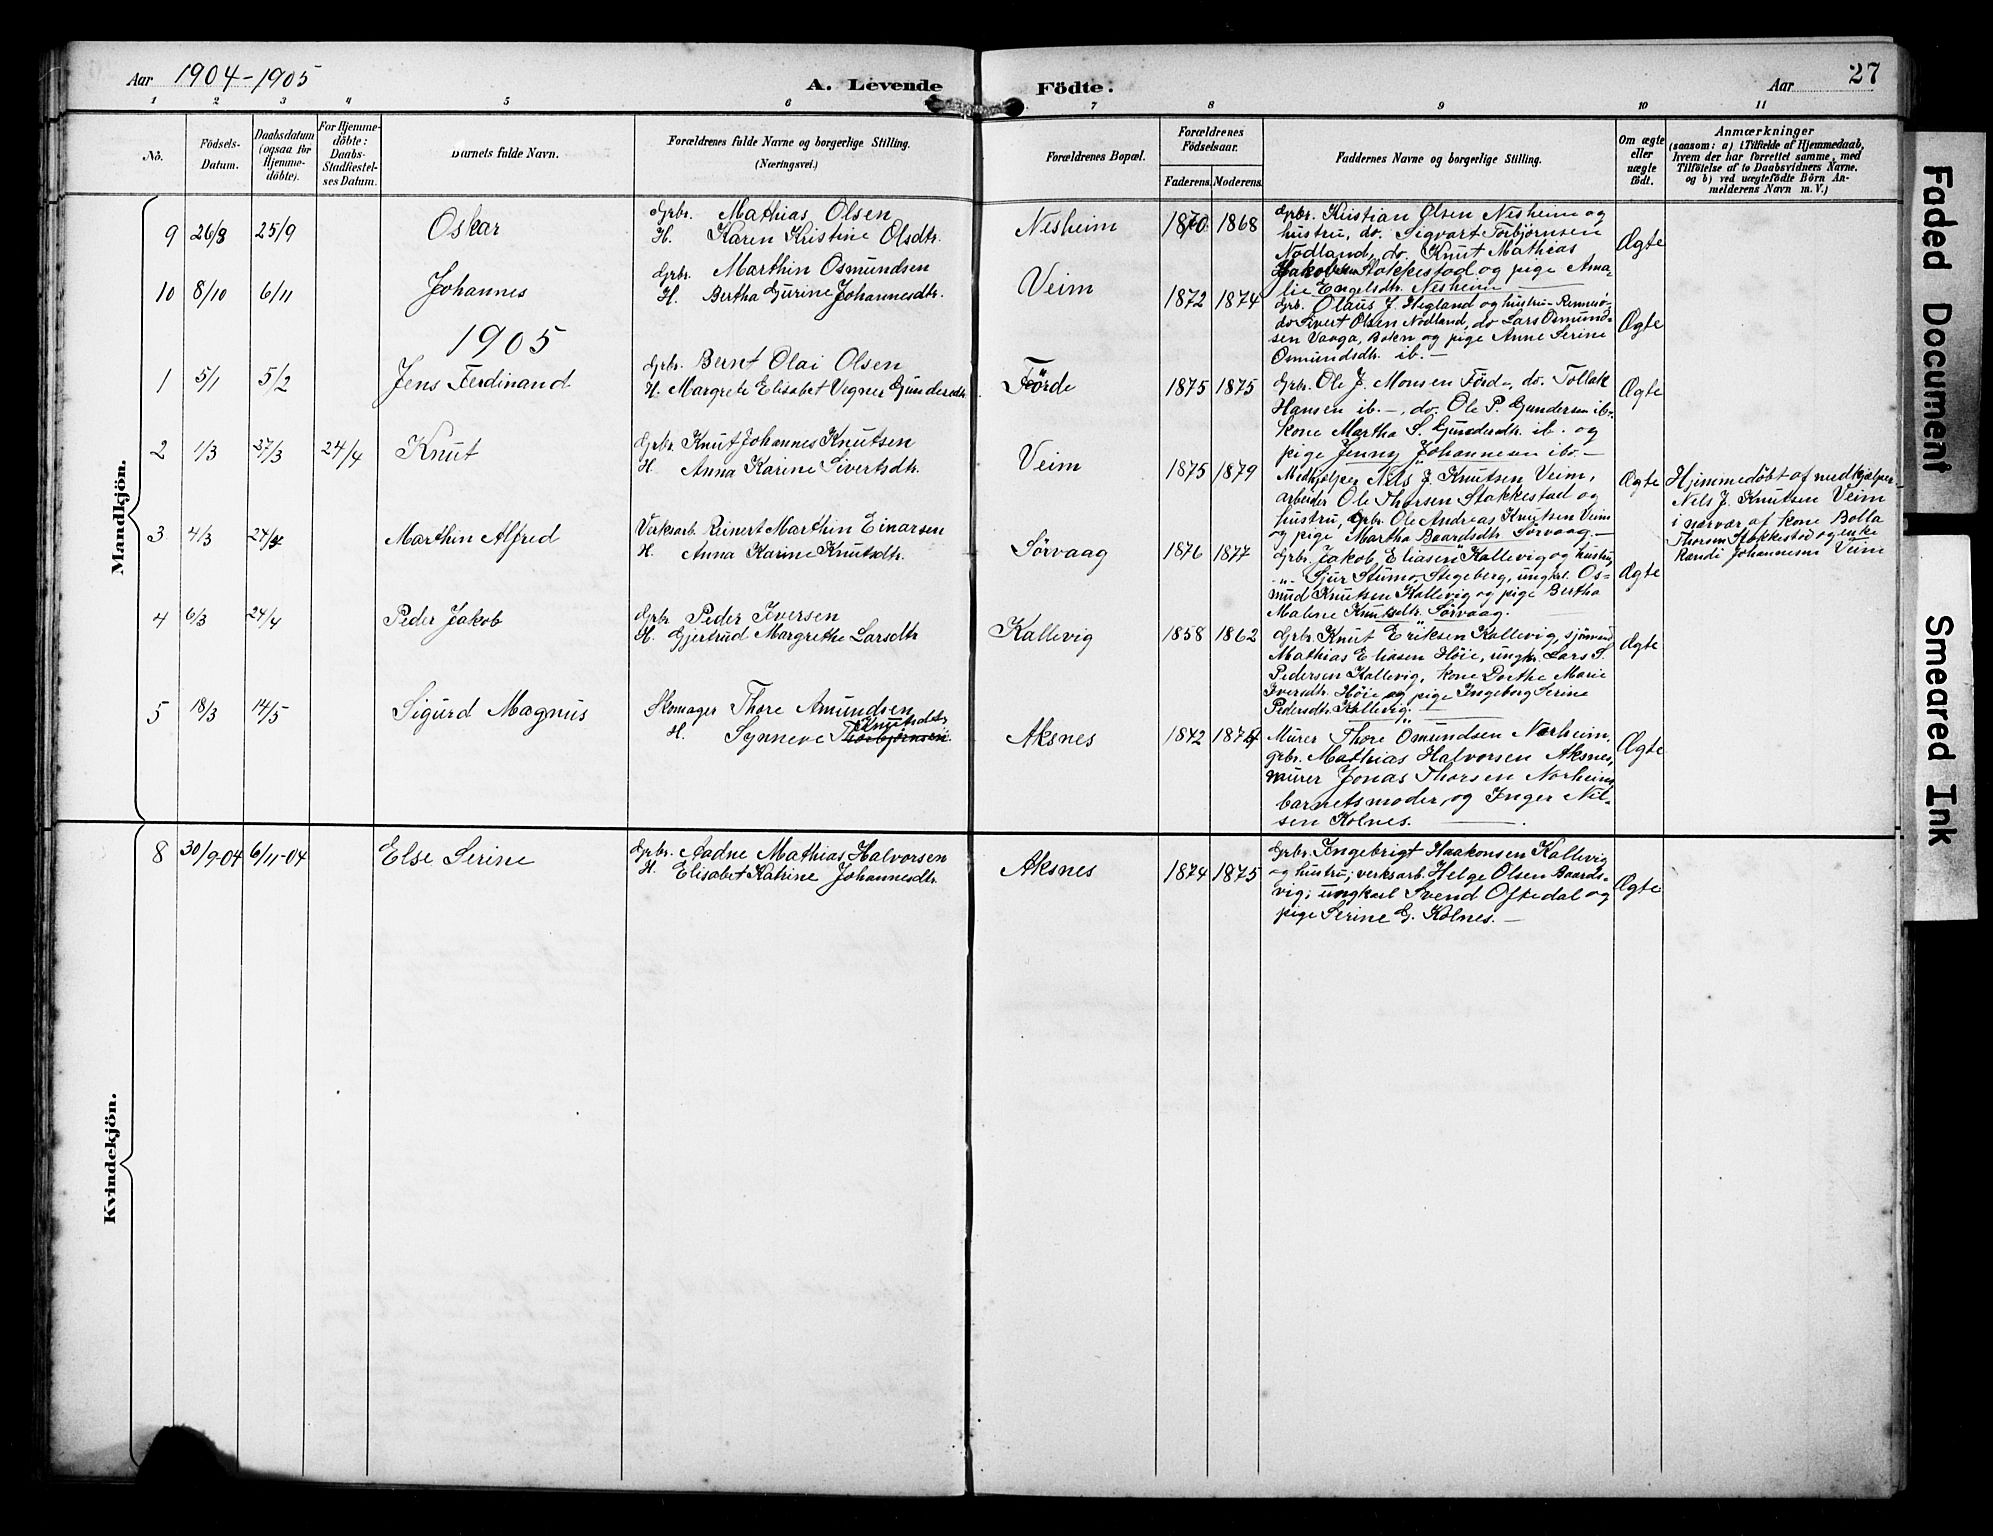 Aar 1904-1905 A. Levende Födte. Aar 27
1 2 3 4 5 6 7 8 9 10 11
No. Födsels-Datum. Daabsdatum (ogsaa for Hjemme-döbte). For Hjemme-döbte: Daabs-Stadfæstel-ses Datum. Barnets fulde Navn. Forældrenes fulde Navne og borgerlige Stilling. (Næringsvei.) Forældrenes Bopæl. Forældrenes Födselsaar. Faderens. Moderens. Faddernes Navne og borgerlige Stilling. Om ægte eller uægte födt. Anmærkninger (saasom: a) i Tilfælde af Hjemmedaab, hvem der har forrettet samme, med Tilföielse af to Daabsvidners Navne, og b) ved uægtefödte Börn An-melderens Navn m. V.)
Mandkjön.
9 26/8 25/9 Oskar
Grbr. Mathias Olsen
H. Karen Kristine Olsdtr.
Nesheim 1870 1868
Grbr. Kristian Olsen Nesheim og
hustru, do. Sigvart Torbjørnsen
Nodland, do. Knut Mathias
Jakobsen Stokkestad og pige Ama-
lie Engelsdtr. Nesheim
Ægte
10 8/10 6/11 Johannes
Grbr. Marthin Osmundsen
H. Bertha Gurine Johannesdtr.
Veim 1872 1874
Grb. Olaus J. Hegland og hustru Rennesö-
do Sivert Olsen Nodland, do Lars Osmund-
sen Vaaga, Boken og pige Anne Serine
Osmundsdtr. ib. —
Ægte
1905
1 5/1 5/2 Jens Ferdinand
Grbr. Bernt Olai Olsen
H. Margrete Elisabet Vegner Gundersdtr.
Förde 1875 1875
Grbr. Ole J. Monsen Förde, do. Tollak
Hansen ib. —, do. Ole P. Gundersen ib.
kone Martha S. Gundersdtr. ib. og
pige Jenny Johannesen ib. —
Ægte
2 1/3 27/3 24/4 Knut
Grbr. Knut Johannes Knutsen
H. Anna Karine Sivertsdtr.
Veim 1875 1879
Medhjelper Nils J. Knutsen Veim,
arbeider Ole Thorsen Stokkestad og
hustru, Grbr. Ole Andreas Knutsen Veim
og pige Martha Baardsdtr Sörvaag. —
Ægte
Hjemmedöbt af medhjelper
Nils J. Knutsen Veim
i nærvær af kone Bolla
Thorsen Stokkestad og enke
Randi Johannesen Veim
3 4/3 24/4 Marthin Alfred
Verksarb. Reinert Marthin Einarsen
H. Anna Karine Knutsdtr.
Sörvaag 1876 1877
Grbr. Jakob Eliasen Kallevig og hustru,
" Sjur Stumo, Stegeberg, ungkl. Os-
mud Knutsen Kallevig og pige Bertha
Maline Knutsdtr. Sörvaag.
Ægte
4 6/3 24/4 Peder Jakob
Grbr. Peder Iversen
H. Gjertrud Margrethe Larsdtr
Kallevig 1858 1862
Grbr. Knut Eriksen Kallevig, sjömand
Mathias Eliasen Höie, ungk. Lars S.
Pedersen Kallevig, kone Dorthe Marie
Iversdtr. Höie og pige Ingeborg Serine
Pedersdtr. Kallevig.
Ægte
5 18/3 14/5 Sigurd Magnus
Skomager Thore Amundsen
Knutsdtr
H. Synneve Thorbjørnsen
Aksnes 1842 1874
Murer Thore Osmundsen Norheim,
grbr. Mathias Halvorsen Aksnes,
murer Jonas Thorsen Norheim,
barnets moder, og Inger Nil-
sen Kolnes. —
Ægte
Kvindekjön.
8 30/9-04 6/11-04 Else Serine
Grbr. Aadne Mathias Halvorsen
H. Elisabet Katrine Johannesdtr.
Aksnes 1874 1875
Grbr. Ingebrigt Haakonsen Kallevig
og hustru; verksarb. Helge Olsen Baards-
vig; ungkarl Svend Oftedal og
pige Serine G. Kolnes. —
Ægte
Faded Document
Smeared Ink